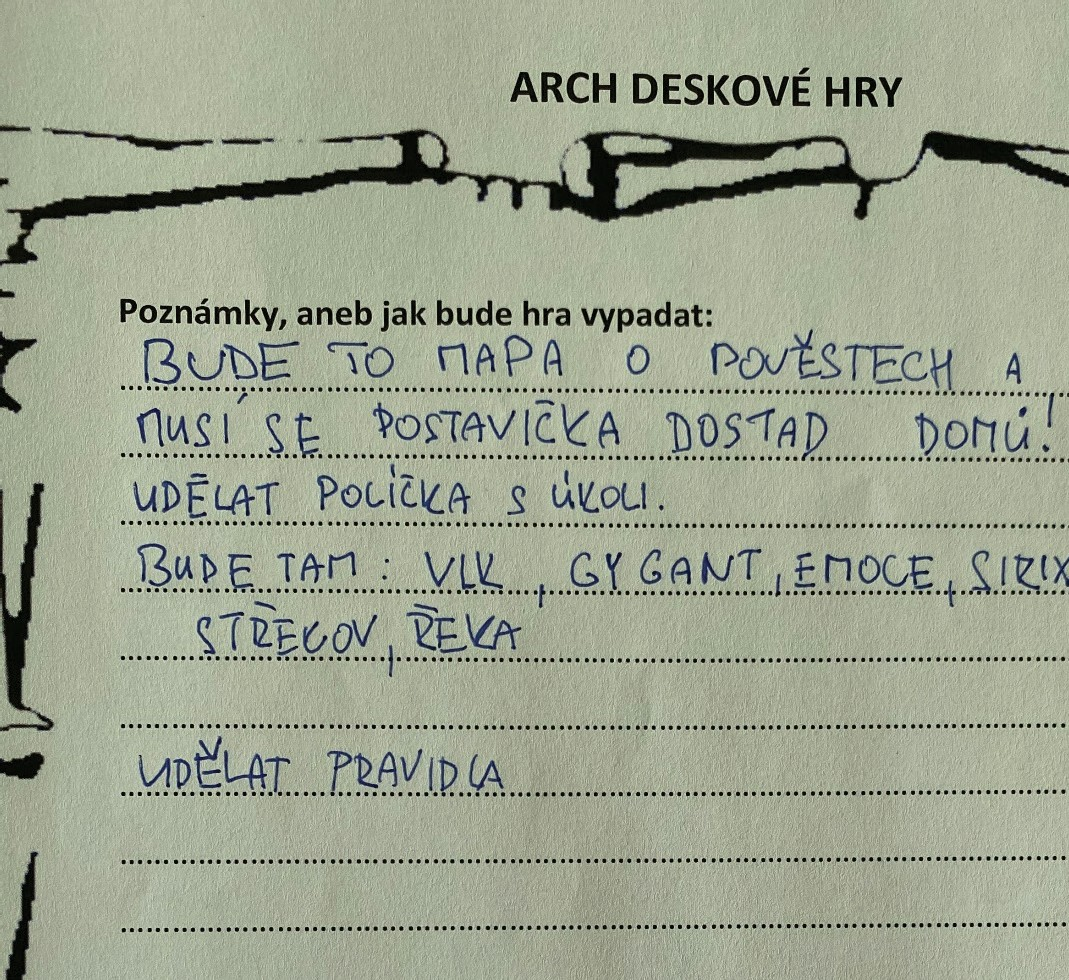 ARCH DESKOVÉ HRY
Poznámky, aneb jak bude hra vypadat:
BUDE TO MAPA O POVĚSTECH A
MUSÍ SE POSTAVIČKA DOSTAD DOMŮ!
UDĚLAT POLÍČKA S ÚKOLI.
BUDE TAM: VLK, GYGANT, EMOCE, SIRIX
STŘEKOV, ŘEKA
UDĚLAT PRAVIDLA